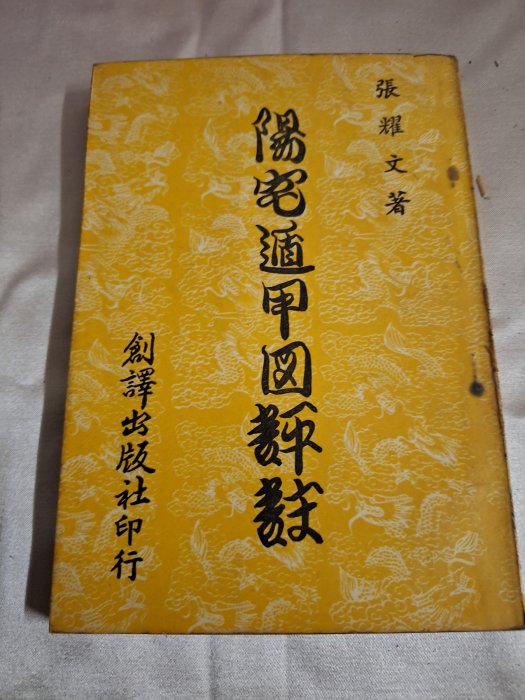 張耀文著
陽宅遁甲図評註
創譯出版社印行